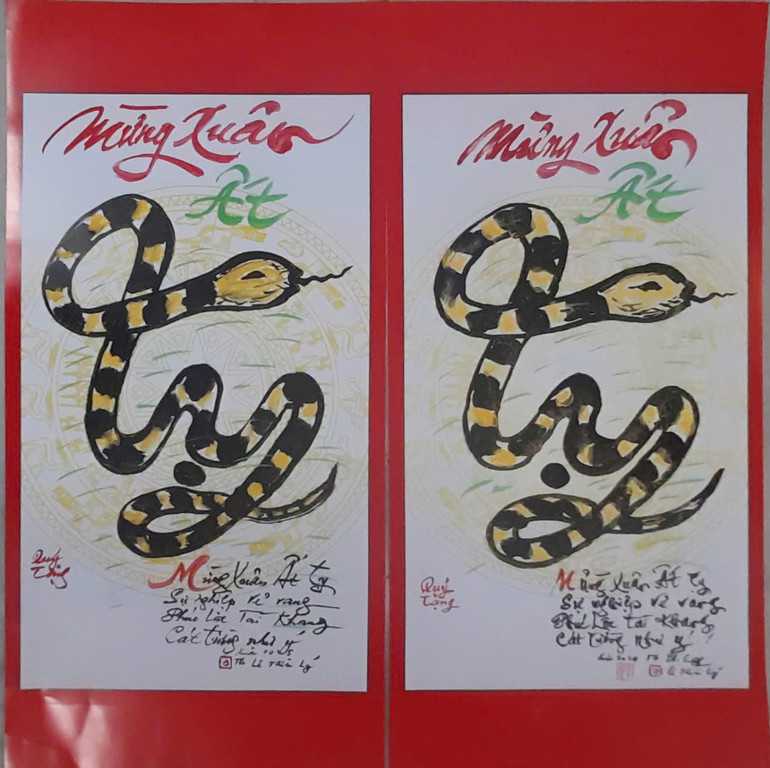 Mừng Xuân
Ất
Tỵ
Quý
Tặng
Mừng Xuân Ất Tỵ
Sự nghiệp vẻ vang
Phúc Lộc Tài Khang
Cát tường như ý
Lê Thiên Lý
Mừng Xuân
Ất
Tỵ
Quý
Tặng
Mừng Xuân Ất Tỵ
Sự nghiệp vẻ vang
Phúc Lộc Tài Khang
Cát tường như ý
Lê Thiên Lý